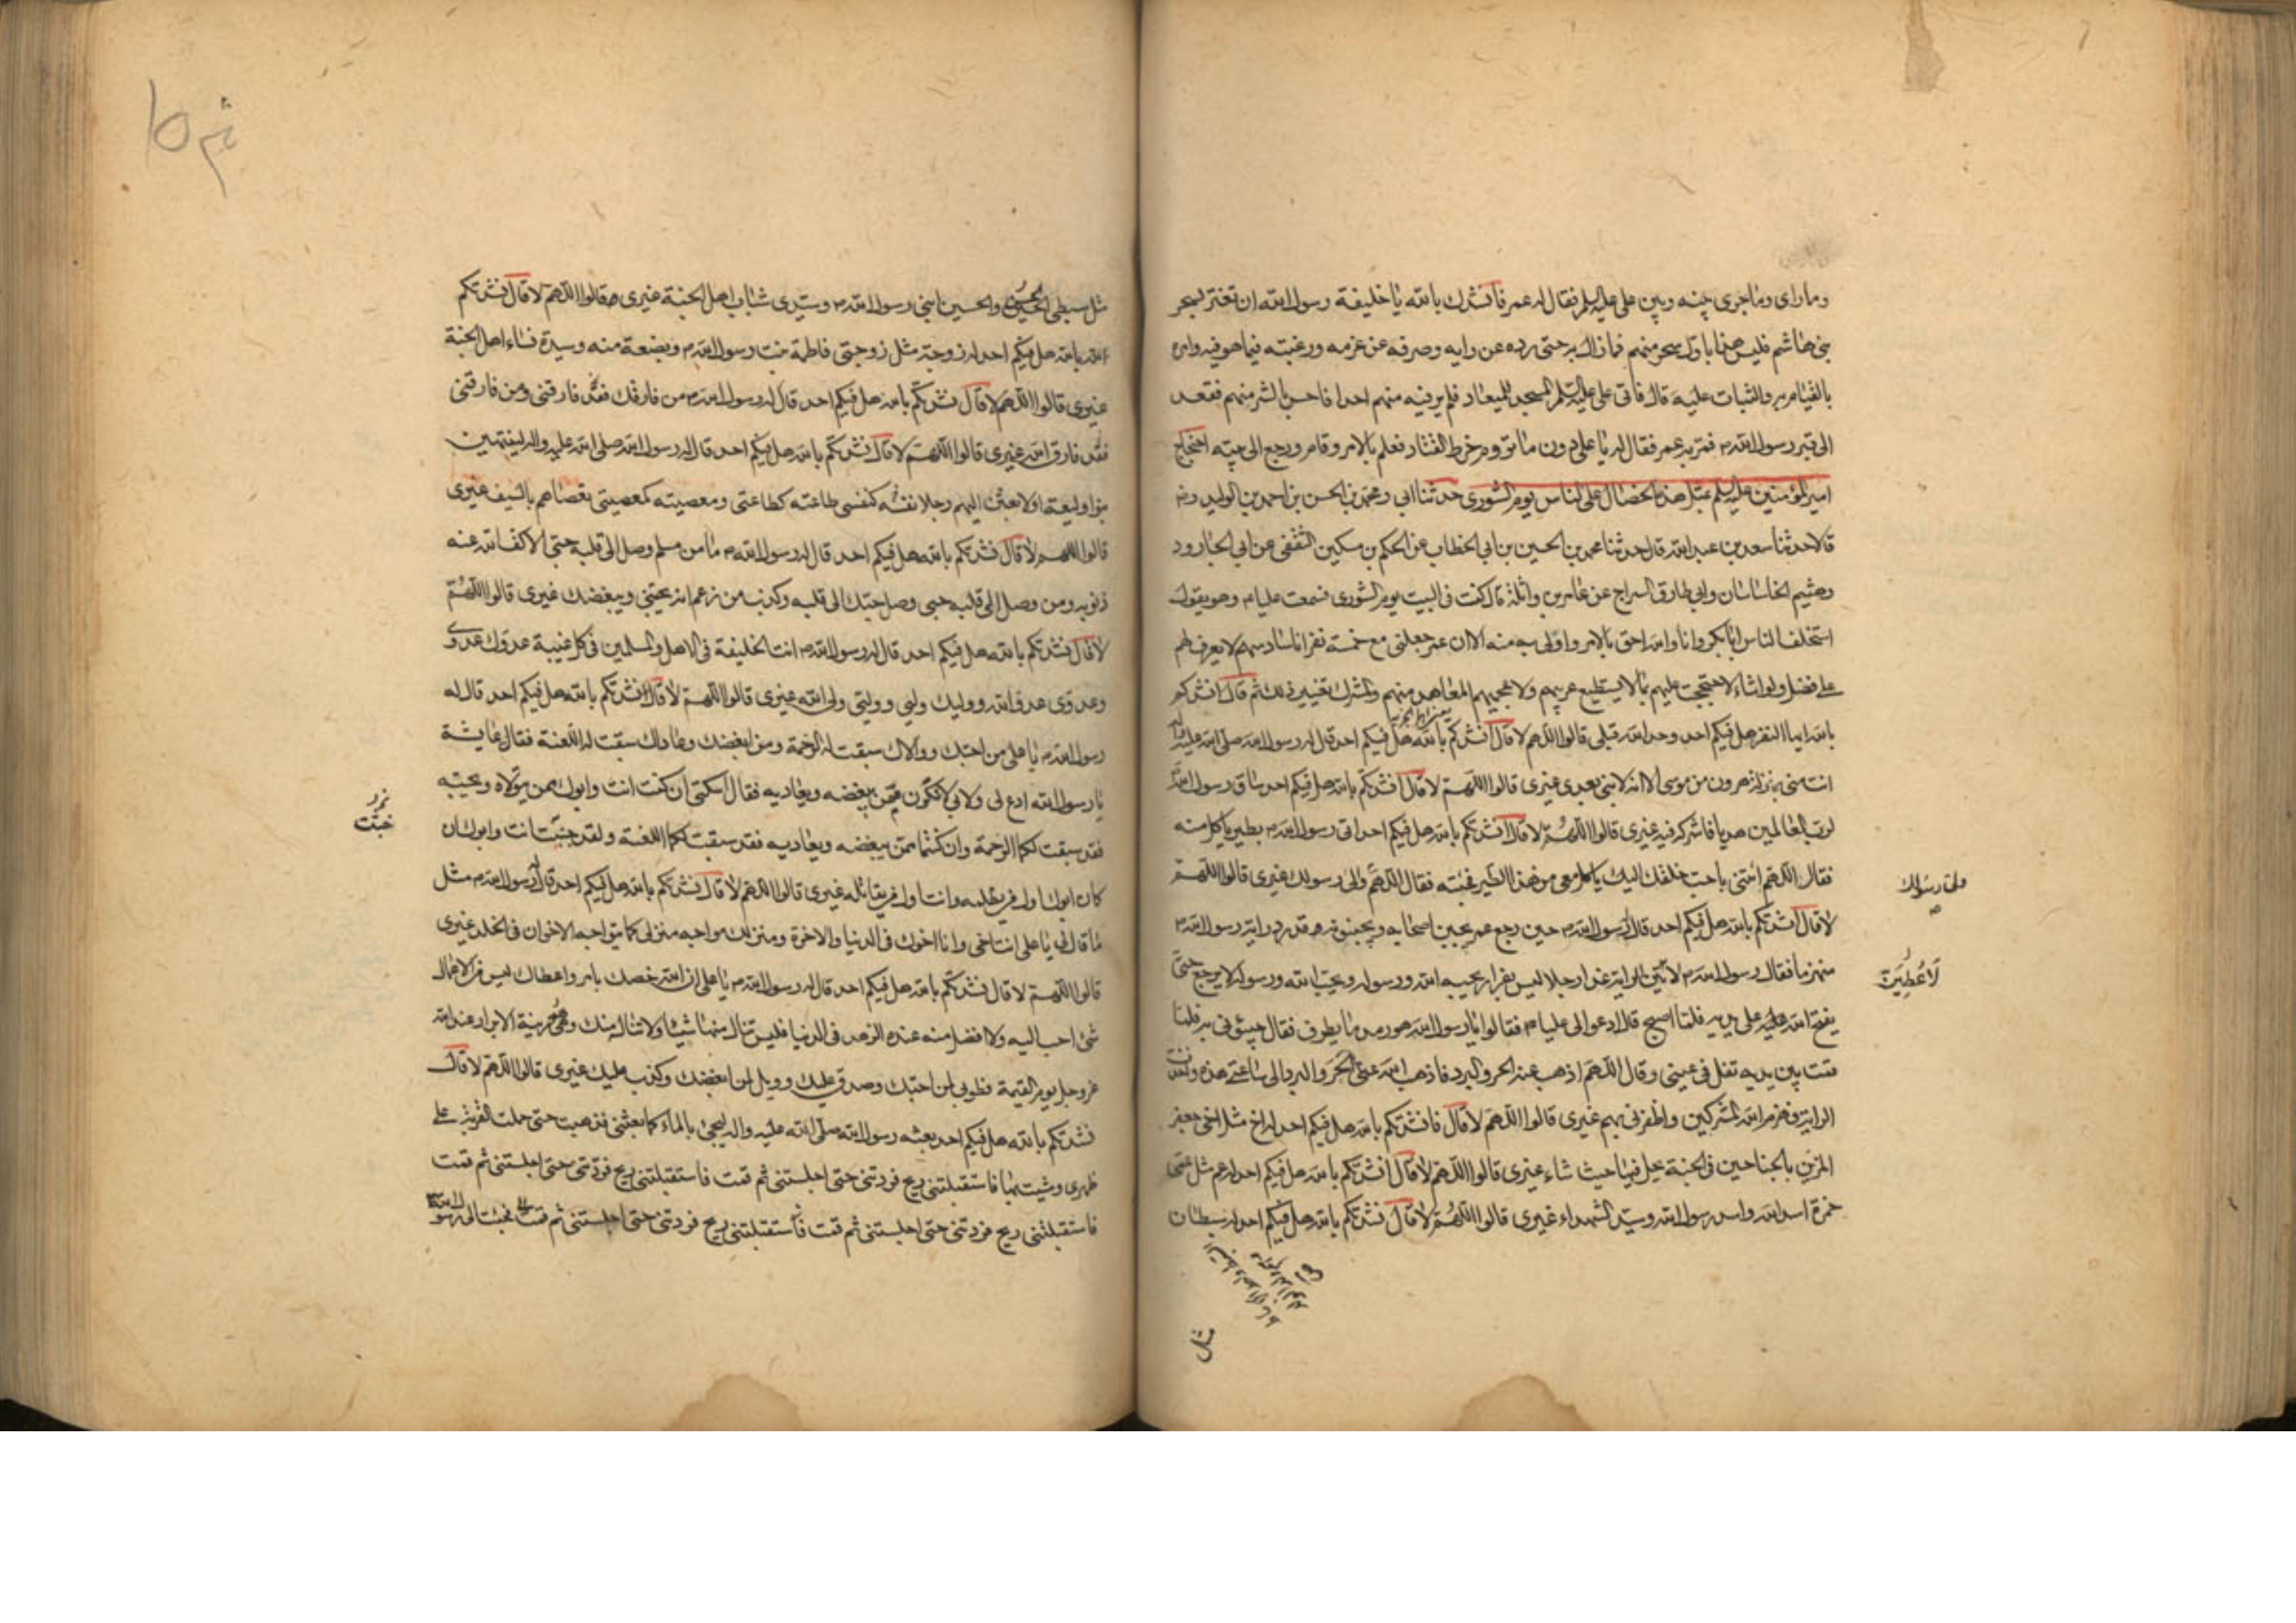 وما راى وما جرى بينه وبين على عليه السلم فقال له عمر فانشدك بالله يا خليفة رسول الله ان تغتر بسحر
بنى هاشم فليس هذا باول سحر منهم فما زال به حتى رده عن رايه وصرفه عن عزمه ورغبته فيما هو فيه وامره
بالقيام به والثبات عليه قال فاتى على عليه السلم المسجد للميعاد فلم ير فيه منهم احدا فاحس بالشر منهم فقعد
الى قبر رسول الله ص فمر به عمر فقال له يا على دون ما تروم خرط القتاد فعلم بالامر وقام ورجع الى بيته احتجاج
امير المؤمنين عليه السلم بمثل هذه الخصال على الناس يوم الشورى حدثنا ابى ومحمد بن الحسن بن احمد بن الوليد رضه
قالا حدثنا سعد بن عبد الله قال حدثنا محمد بن الحسين بن ابى الخطاب عن الحكم بن مسكين الثقفى عن ابى الجارود
وهشيم ابى ساسان وابى طارق السراج عن عامر بن واثلة قال كنت فى البيت يوم الشورى فسمعت عليا م وهو يقول
استخلف الناس ابا بكر وانا والله احق بالامر واولى به منه الا ان عمر جعلنى مع خمسة نفر انا سادسهم لا يعرف لهم
على فضل ولو اشاء لاحتججت عليهم بما لا يستطيع عربيهم ولا عجميهم المعاهد منهم والمشرك تغيير ذلك ثم قال انشدكم
بالله ايها النفر هل فيكم احد وحد الله قبلى قالوا اللهم لا قال انشدكم بالله هل فيكم احد قال له رسول الله صلى الله عليه واله
انت منى بمنزلة هرون من موسى الا انه لا نبى بعدى غيرى قالوا اللهم لا قال انشدكم بالله هل فيكم احد ساق رسول الله
لرب العالمين هديا فاشركه فيه غيرى قالوا اللهم لا قال انشدكم بالله هل فيكم احد اتى رسول الله ص بطير ياكل منه
فقال اللهم ائتنى باحب خلقك اليك ياكل معى من هذا الطير فجئته فقال اللهم والى رسولك غيرى قالوا اللهم
والى رسولك
لا قال انشدكم بالله هل فيكم احد قال رسول الله ص حين رجع عمر يجبن اصحابه ويجبنونه قد رد راية رسول الله ص
منهزما فقال رسول الله ص لاعطين الراية غدا رجلا ليس بفرار يحبه الله ورسوله ويحب الله ورسوله لا يرجع حتى
لاعطين
يفتح الله عليه على يديه فلما اصبح قال ادعوا لى عليا م فقالوا يا رسول الله هو رمد ما يطرف فقال جيئونى به فلما
قمت بين يديه تفل فى عينى وقال اللهم اذهب عنه الحر والبرد فاذهب الله عنى الحر والبرد الى ساعتى هذه واخذت
الراية فهزم الله المشركين واظفرنى بهم غيرى قالوا اللهم لا قال فانشدتكم بالله هل فيكم احد له اخ مثل اخى جعفر
المزين بالجناحين فى الجنة يحل فيها حيث شاء غيرى قالوا اللهم لا قال انشدتكم بالله هل فيكم احد له عم مثل عمى
حمزة اسد الله واسد رسول الله وسيد الشهداء غيرى قالوا اللهم لا قال نشدتكم بالله هل فيكم احد له سبطان
مثل
مثل سبطى الحسن والحسين ابنى رسول الله ص وسيدى شباب اهل الجنة غيرى قالوا اللهم لا قال نشدتكم
بالله هل فيكم احد له زوجة مثل زوجتى فاطمة بنت رسول الله ص وبضعة منه وسيدة نساء اهل الجنة
غيرى قالوا اللهم لا قال نشدتكم بالله هل فيكم احد قال له رسول الله ص من فارقك فقد فارقنى ومن فارقنى
فقد فارق الله غيرى قالوا اللهم لا قال نشدتكم بالله هل فيكم احد قال له رسول الله صلى الله عليه واله لينتهين
بنو وليعة او لابعثن اليهم رجلا نفسه كنفسى طاعته كطاعتى ومعصيته كمعصيتى يقصاهم بالسيف غيرى
قالوا اللهم لا قال نشدتكم بالله هل فيكم احد قال له رسول الله ص ما من مسلم وصل الى قلبه حبى الا كفر الله عنه
ذنوبه ومن وصل الى قلبه حبى وصل حبك الى قلبه وكذب من زعم انه يحبنى ويبغضك غيرى قالوا اللهم
لا قال نشدتكم بالله هل فيكم احد قال له رسول الله ص انت الخليفة فى الاهل والمسلمين فى كل غيبة عدوك عدوى
وعدوى عدو الله ووليك وليى ووليى ولى الله غيرى قالوا اللهم لا قال نشدتكم بالله هل فيكم احد قال له
رسول الله ص يا على من احبك ووالاك سبقت له الرحمة ومن ابغضك وعاداك سبقت له اللعنة فقال عايشة
يا رسول الله ادع لى ولابى لا نكون ممن يبغضه ويعاديه فقال اسكتى ان كنت انت وابوك ممن يتولاه ويحبه
فقد سبقت لكما الرحمة وان كنتما ممن يبغضه ويعاديه فقد سبقت لكما اللعنة ولقد خبثت انت وابوك ان
خبثت
كان ابوك اول من يظلمه وانت اول من يقاتله غيرى قالوا اللهم لا قال نشدتكم بالله هل فيكم احد قال له رسول الله ص مثل
ما قال لى يا على انت اخى وانا اخوك فى الدنيا والاخرة ومنزلك مواجه منزلى كما يتواجه الاخوان فى الخلد غيرى
قالوا اللهم لا قال نشدتكم بالله هل فيكم احد قال له رسول الله ص يا على ان الله خصك بامر واعطاك ليس من الاعمال
شئ احب اليه ولا افضل منه عنده الزهد فى الدنيا فليس تنال منها شيئا ولا تناله منك وهى زينة الابرار عند الله
عز وجل يوم القيمة فطوبى لمن احبك وصدق عليك وويل لمن ابغضك وكذب عليك غيرى قالوا اللهم لا قال
نشدتكم بالله هل فيكم احد بعثه رسول الله صلى الله عليه واله ليجئ بالماء كما بعثنى فذهبت حتى حملت القربة على
ظهرى ومشيت بها فاستقبلتنى ريح فردتنى حتى اجلستنى ثم قمت فاستقبلتنى ريح فردتنى حتى اجلستنى ثم قمت
فاستقبلتنى ريح فردتنى حتى اجلستنى ثم قمت فاستقبلتنى ريح فردتنى حتى اجلستنى ثم قمت فجئت الى رسول الله